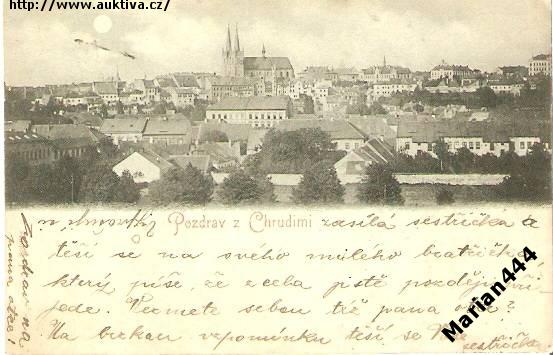 http://www.auktiva.cz/
Pozdrav z Chrudimi zasílá sestřička a
těší se na svého milého bratříčka
který píše, že z celá ještě později
jede. Vezmete sebou též pana otce?
Na brzkou vzpomínku těší se
sestřička
Pozdrav na
pana otce!
Marian444